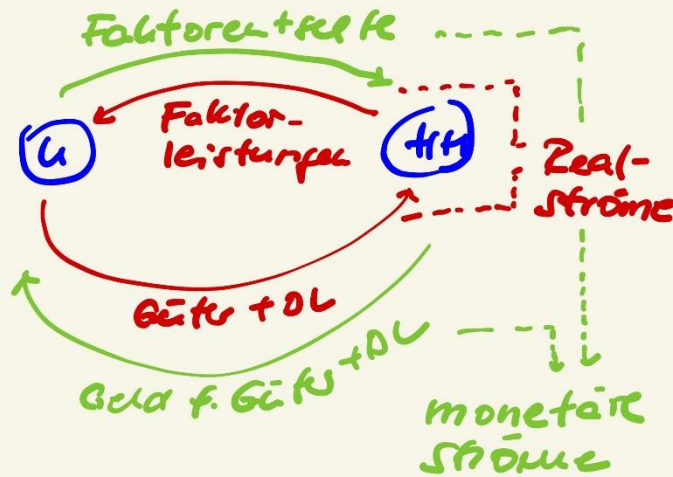 Faktorentgelte
Faktor-
leistungen
U
HH
Real-
ströme
Güter + DL
Geld f. Güter + DL
monetäre
Ströme